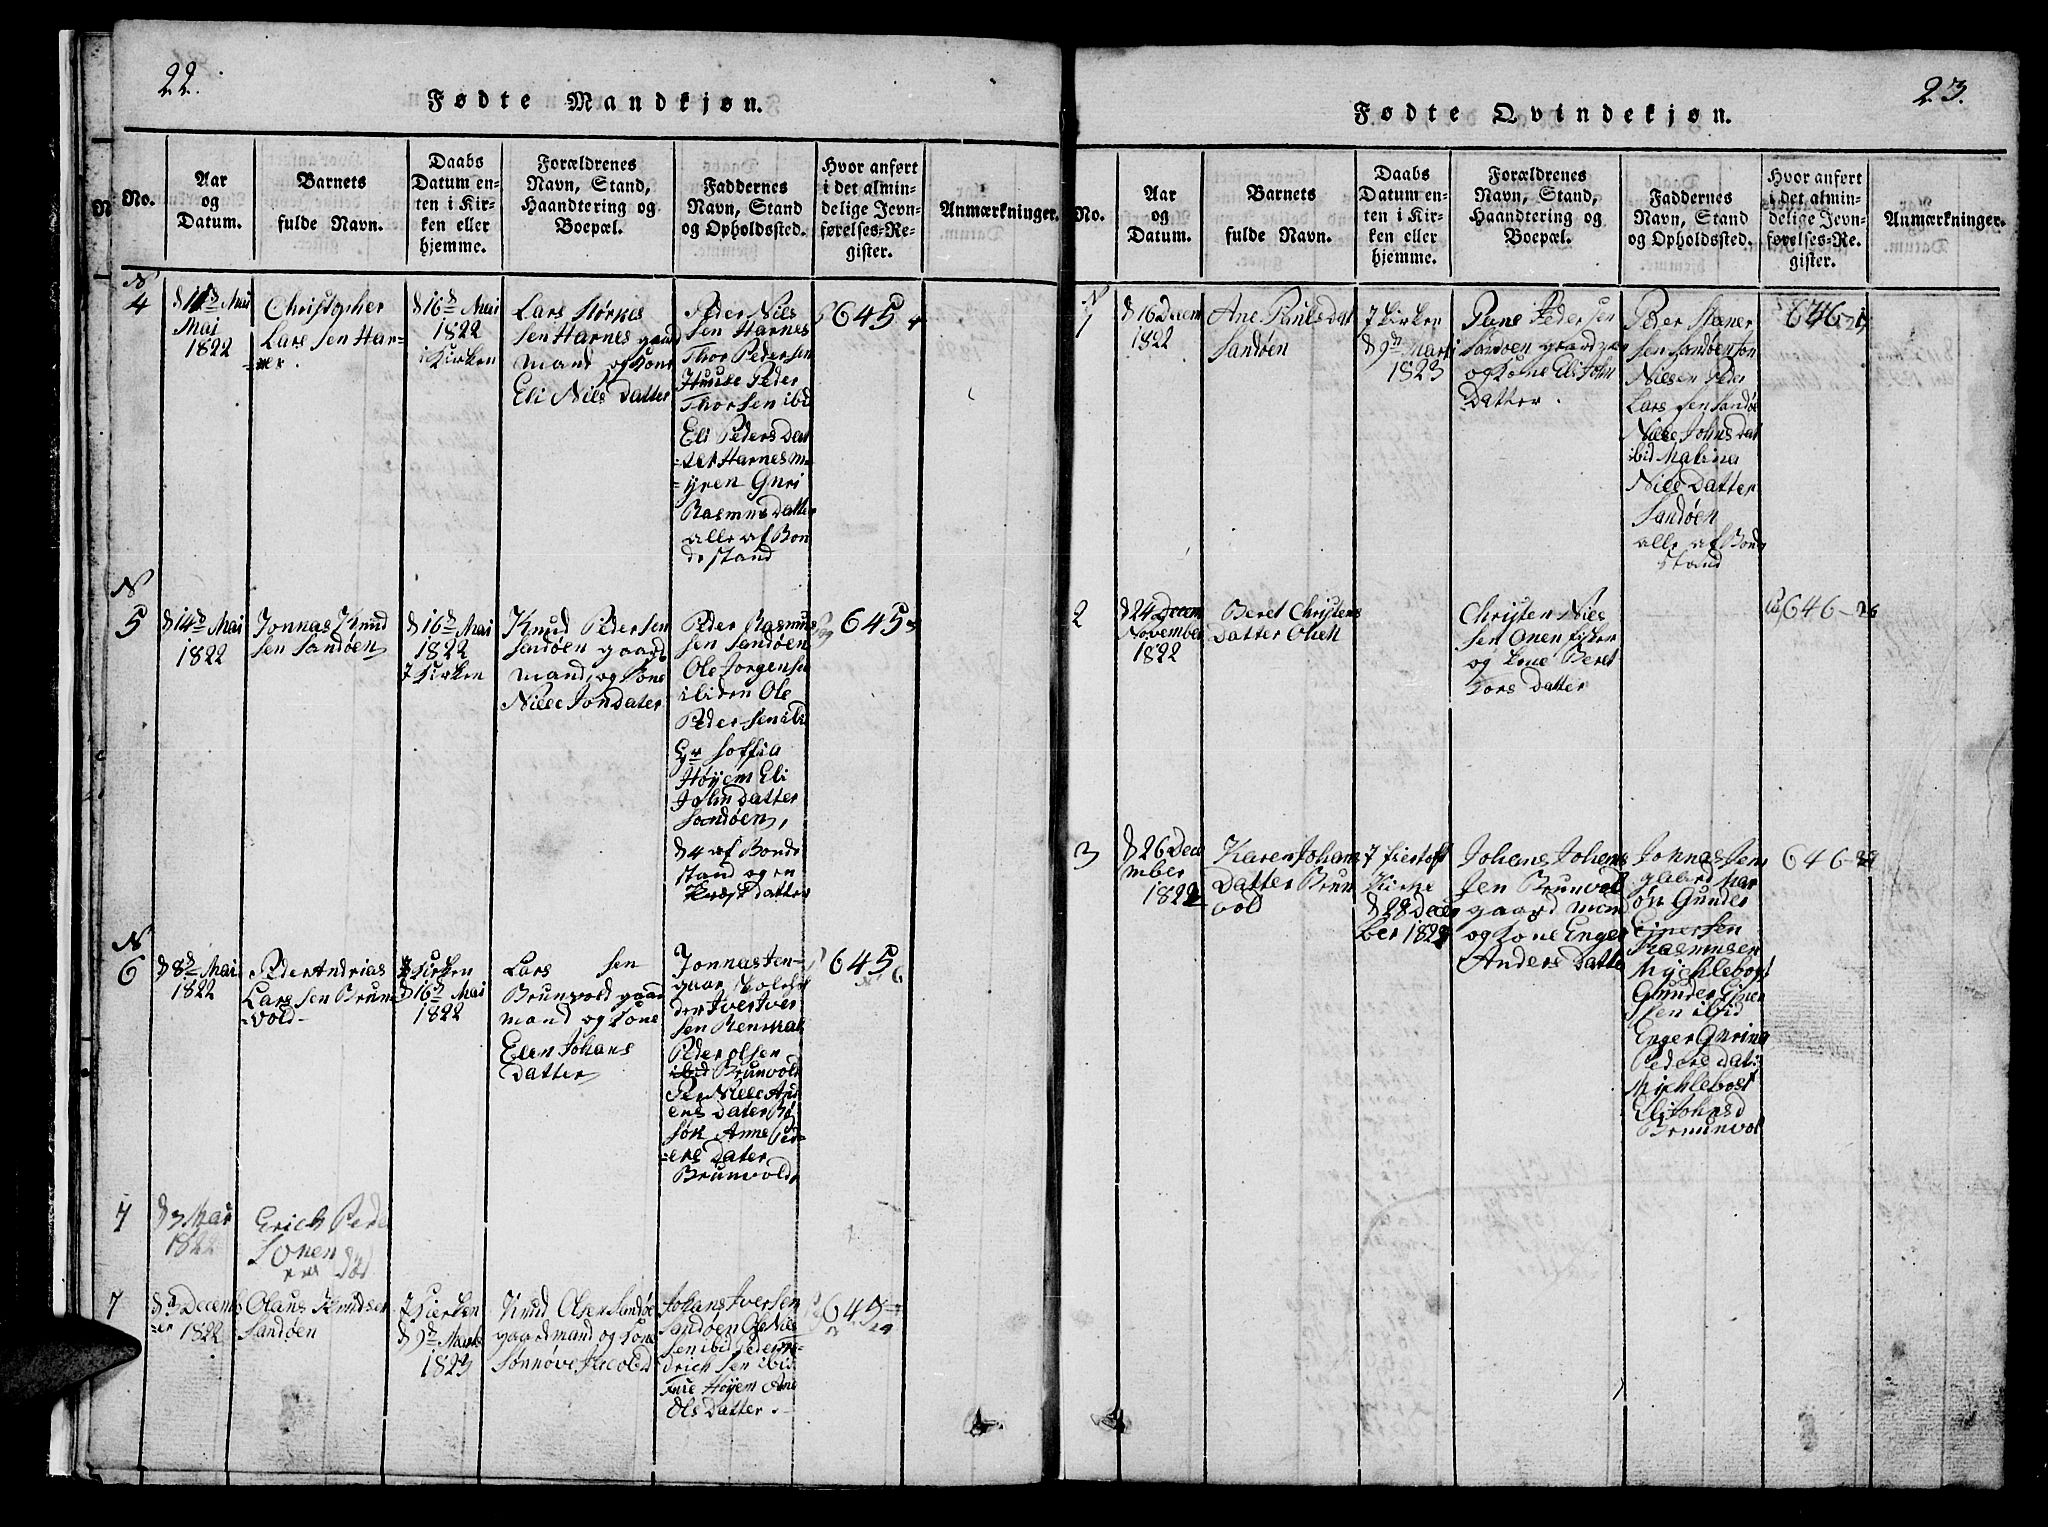 22.
Fødte Mandkjøn.
No.
Aar
og
Datum.
Barnets
fulde Navn.
Daabs
Datum en-
ten i Kir-
ken eller
hjemme.
Forældrenes
Navn, Stand,
Haandtering og
Boepæl.
Faddernes
Navn, Stand
og Opholdssted.
Hvor anført
i det almin-
delige Jevn-
førelses-Re-
gister.
Anmærkninger.
N
4
Mai
1822
Christopher
Lars sen Har-
d 16d Mai
1822
i Kirken
Lars Størkes
sen Harnes gaard
mand og Kone
Eli Nils Datter
Peder Nils
sen Harnes
Thor Peder sen
Huuse Peder
Thor sen ibid
Eli Peders Dat
=ter Harnes m-
=yren Guri
Rasmus Datter
alle af Bon
de stand
645
N
5
d 14d Mai
1822
Jonnas Knud
sen Sandøen
d 16d Mai
1822
I Kirken
Knud Peder sen
Sandøen gaard
mand, og Kone
Nille Jon Dater
Peder Rasmus
sen Sandøen
Ole Jorgensen
ibiden Ole
Peder sen ibi
Soffia
Høyem Eli
John Datter
Sandøen,
d 4 af Bonde
stand og en
Datter
645
N
6
d 8d Mai
1822
Peder Andrias
Lars sen Brun
=vold
I Kirken
d 16d Mai
1822
Lars sen
Brunvold gaard
mand og Kone
Elen Johans
Datter
Jonnas Jen-
Iver Iver
sen
Peder olsen
ibid Brunvold
Nille And
ers Dater
Anne Ped-
=ers Dater
Brunvold
645 6
7
d 3 Mai
1822
Erich Peder
S Onen
7
Decemb
=er 1822
Olaus Knudsen
Sandøen
I Kirken
d 9d Marti
1823
Knud Olsen Sandøe
gaardmand og Kone
Sønnøve Jacob d
Johans Iversen
Sandøen Ole Nils
sen ibid Peder
drich sen ibid
Høyem Ane
Ols Datter.
645
23.
Fødte Qvindekjøn.
No.
Aar
og
Datum.
Barnets
fulde Navn.
Daabs
Datum en-
ten i Kir-
ken eller
hjemme.
Forældrenes
Navn, Stand,
Haandtering og
Boepæl.
Faddernes
Navn, Stand
og Opholdssted.
Hvor anført
i det almin-
delige Jevn-
førelses-Re-
gister.
Anmærkninger.
N
1
d 16 Decem
1822
Ane Pauls dat
Sandøen
I Kirken
d 9d Marti
1823
Peder sen
Sandøen
og Kone Eli John
Datter.
Peder
sen Sandøen Jon
Nilsen Peder
Lars sen Sandøe
Nille Johns dat
ibid Malina
Nils Datter
Sandøen
alle af Bonde
stand
646
2
d 24 Decem
November
1822
Beret Christens
Datter Onen
Christen Nils
sen Onen
og Kone Beret
Tors Datter
646-26
3
d 26 Dece
mber
1822
Karen Johans
Datter Brun
vold
Kirke
d 28 Decem
ber 1822
Johans Johans
sen Brunvold
gaard mand
og Kone Enger
Anders Datter
Johnas Jens
gaard Har
øn Gunder
Einersen
Rasmusen
Mychlebost
Gunder Einer
sen ibid
Enger
Peders dat:
Mychlebost
Eli Johns d
Brunvol
646